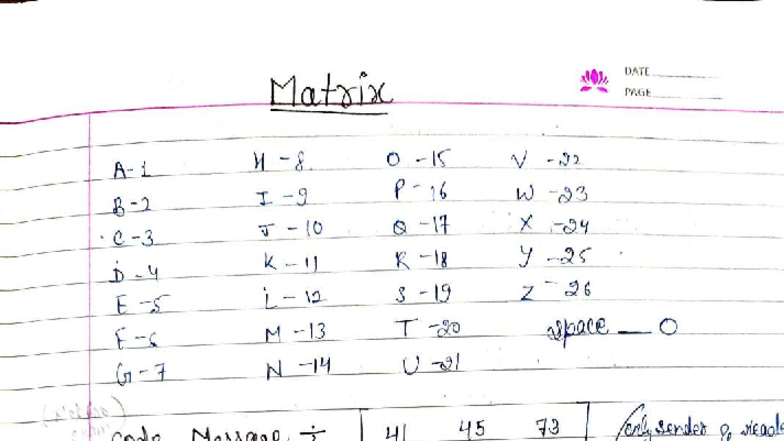 Matrix
DATE
PAGE
A-1 H-8 O-15 V-22
B-2 I-9 P-16 W-23
C-3 J-10 Q-17 X-24
D-4 K-11 R-18 Y-25
E-5 L-12 S-19 Z-26
F-6 M-13 T-20 space — 0
G-7 N-14 U-21
code Message ÷ 41 45 73 (only sender &